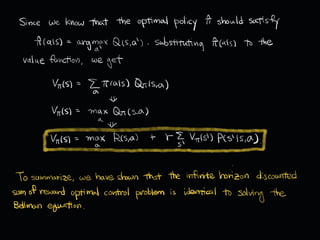 Since we know that the optimal policy π̂ should satisfy
π̂(a|s) = argmax_{a'} Q(s,a'). Substituting π̂(a|s) to the
value function, we get
V_π(s) = Σ_a π(a|s) Q_π(s,a)
⇓
V_π(s) = max_a Q_π(s,a)
⇓
V_π(s) = max_a R(s,a) + γ Σ_{s'} V_π(s') P(s'|s,a)
To summarize, we have shown that the infinite horizon discounted
sum of reward optimal control problem is identical to solving the
Bellman equation.